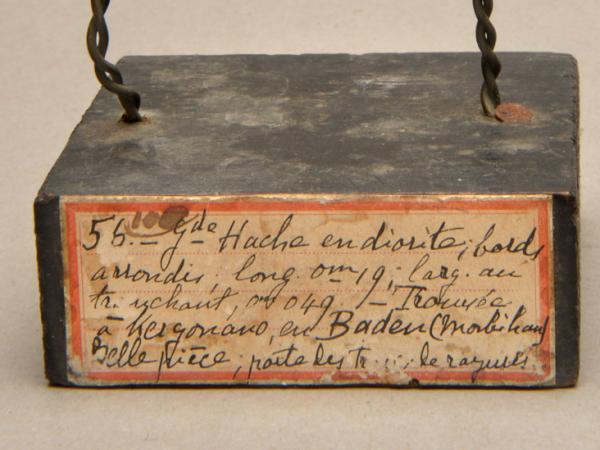 56.- Gde Hache en diorite; bords
arrondis; long. 0m19; larg. au
tranchant, 0m049. - Trouvée
à Kergonano, en Baden (Morbihan)
Belle pièce; porte des traces de rayures.